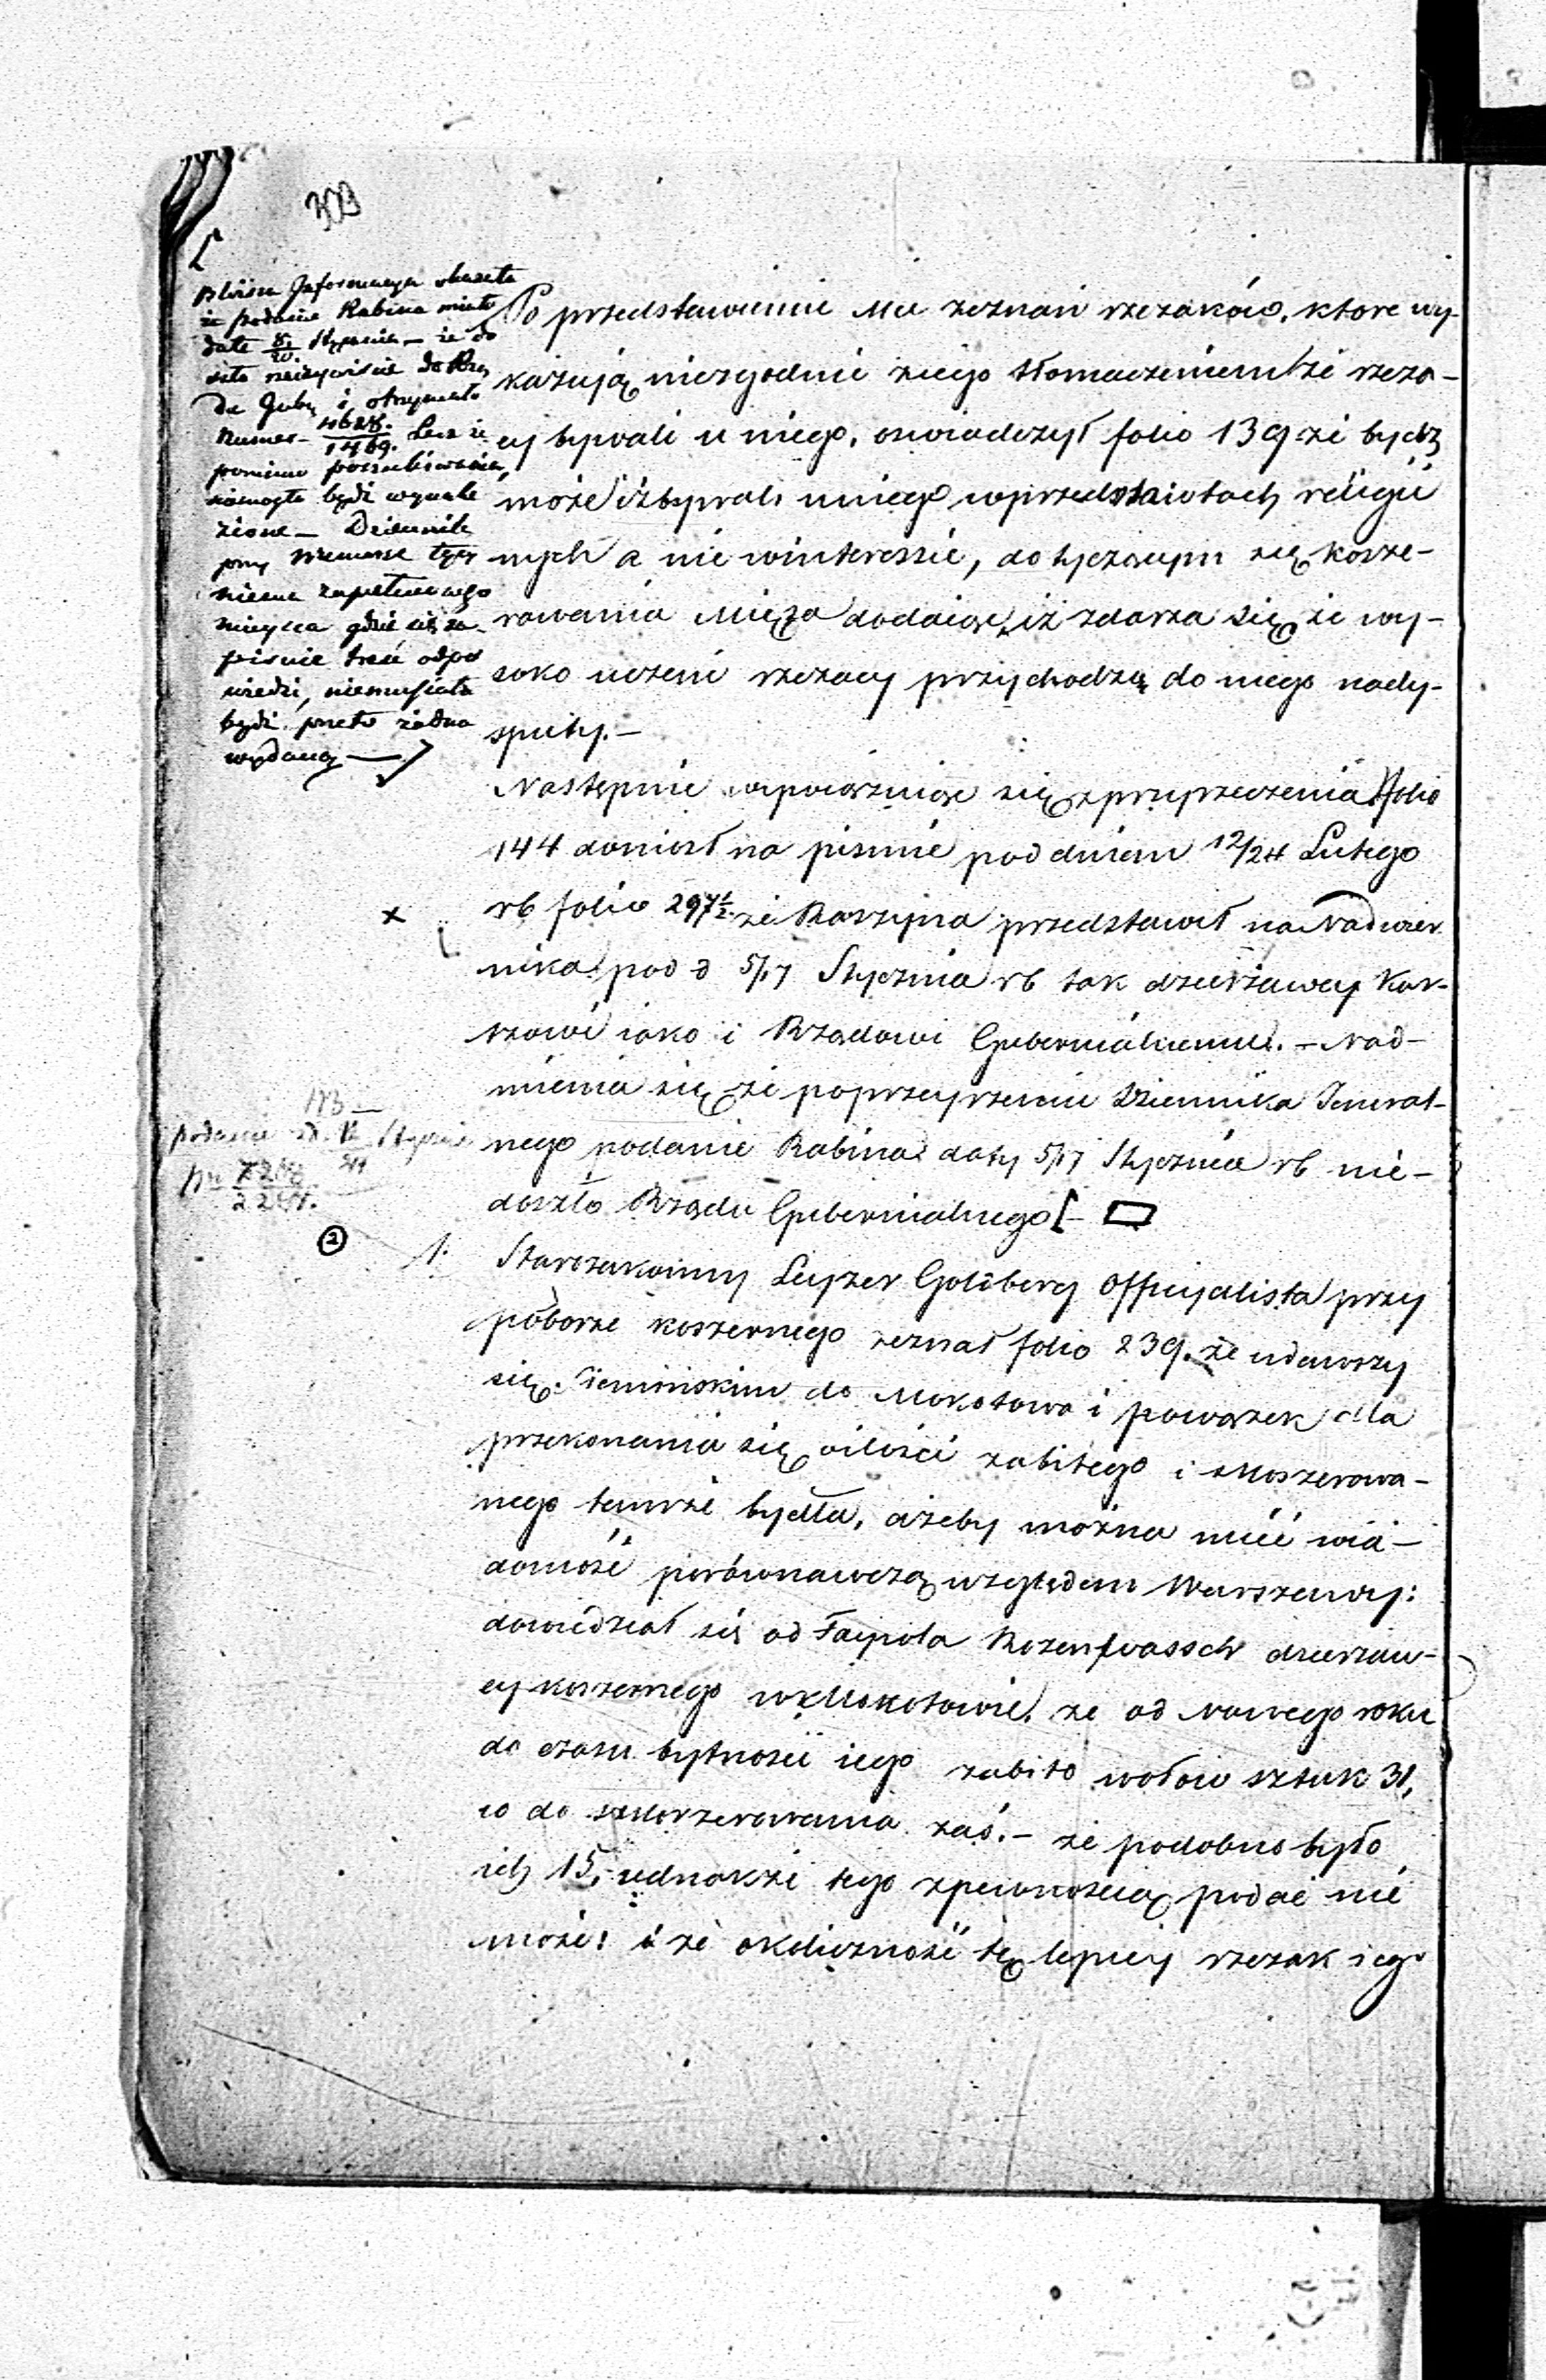 303
Bliższa Informacya okazała
że podanie Rabina miało
datę 8/20. Stycznia – że do
szło rzeczywiście do Rzą
du Gub. i otrzymało
Numer – 4628./1469. Lecz że
pomimo poszukiwania,
niemogło bydź wynale
zione – Dziennik
przy Numerze tym
niema zapełnionego
mieysca gdzie się za-
pisuie treść odpo
wiedzi, niemusiała
bydź przeto żadna
wydaną —
Po przedstawieniu Mu zeznań rzezaków, ktore wy-
kazują niezgodnie z iego tłomaczeniem że rzeza-
cy bywali u niego, oswiadczył folio 139 że bydź
może iż bywali u niego w przedmiotach religii
nych a nie w interessie, dotyczącym się kosze-
rowania Mięsa dodaiąc, iż zdarza się że wy-
soko uczeni rzezacy przychodzą do niego na dy-
sputy. –
Następnie z przyrzeczenia folio
144 doniosł na pismie pod dniem 12/24 Lutego
x
rb folio 297½ że Raszyna przedstawił na Nadzier
nika pod d 5/17 Stycznia rb tak dzierżawcy Kor-
szowi iako i Rządowi Gubernialnemu. – Nad-
mienia się że po przeyrzeniu Dziennika Jeneral-
nego podanie Rabina daty 5/17 Stycznia rb nie-
doszło Rządu Gubernialnego –
NB –
podanie d. 12/24 Stycznia
Nr
2
1.
Starozakonny Leyzer Goldberg Officyalista przy
poborze koszernego zeznał folio 239. że udawszy
się z do Mokotowa i Powązek dla
przekonania się o ilości zabitego i skoszerowa-
nego tamże bydła, ażeby można mieć wia-
domość porównawczą względem Warszawy:
dowiedział się od Faypola Rozenwasser dzierżaw-
cy koszernego w Mokotowie, że od Nowego roku
do czasu bytności iego zabito wołów sztuk 31,
co do skoszerowania zaś. – że podobno było
ich 15, iednakże tego z pewnością podać nie
może: i że okoliczność tę lepiey rzezak iego